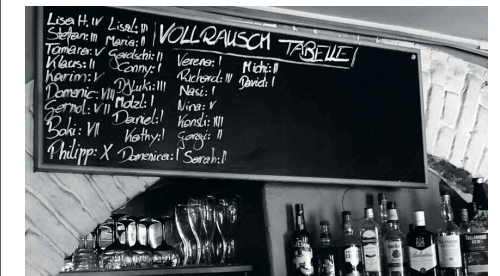 VOLLRAUSCH TABELLE
Lisa H.: IV
Stefan: III
Tamara: V
Klaus: II
Karim: V
Domenic: VIII
Gernot: VII
Boki: VII
Philipp: X
Lisa L: III
Maria: II
Conny: I
DJ Luki: III
Motzl: I
Daniel: I
Kathy: I
Domenica: I
Verena: I
Richard: III
Nasi: I
Nina: V
Sarah: II
Michi: II
David: I
Ballantine's